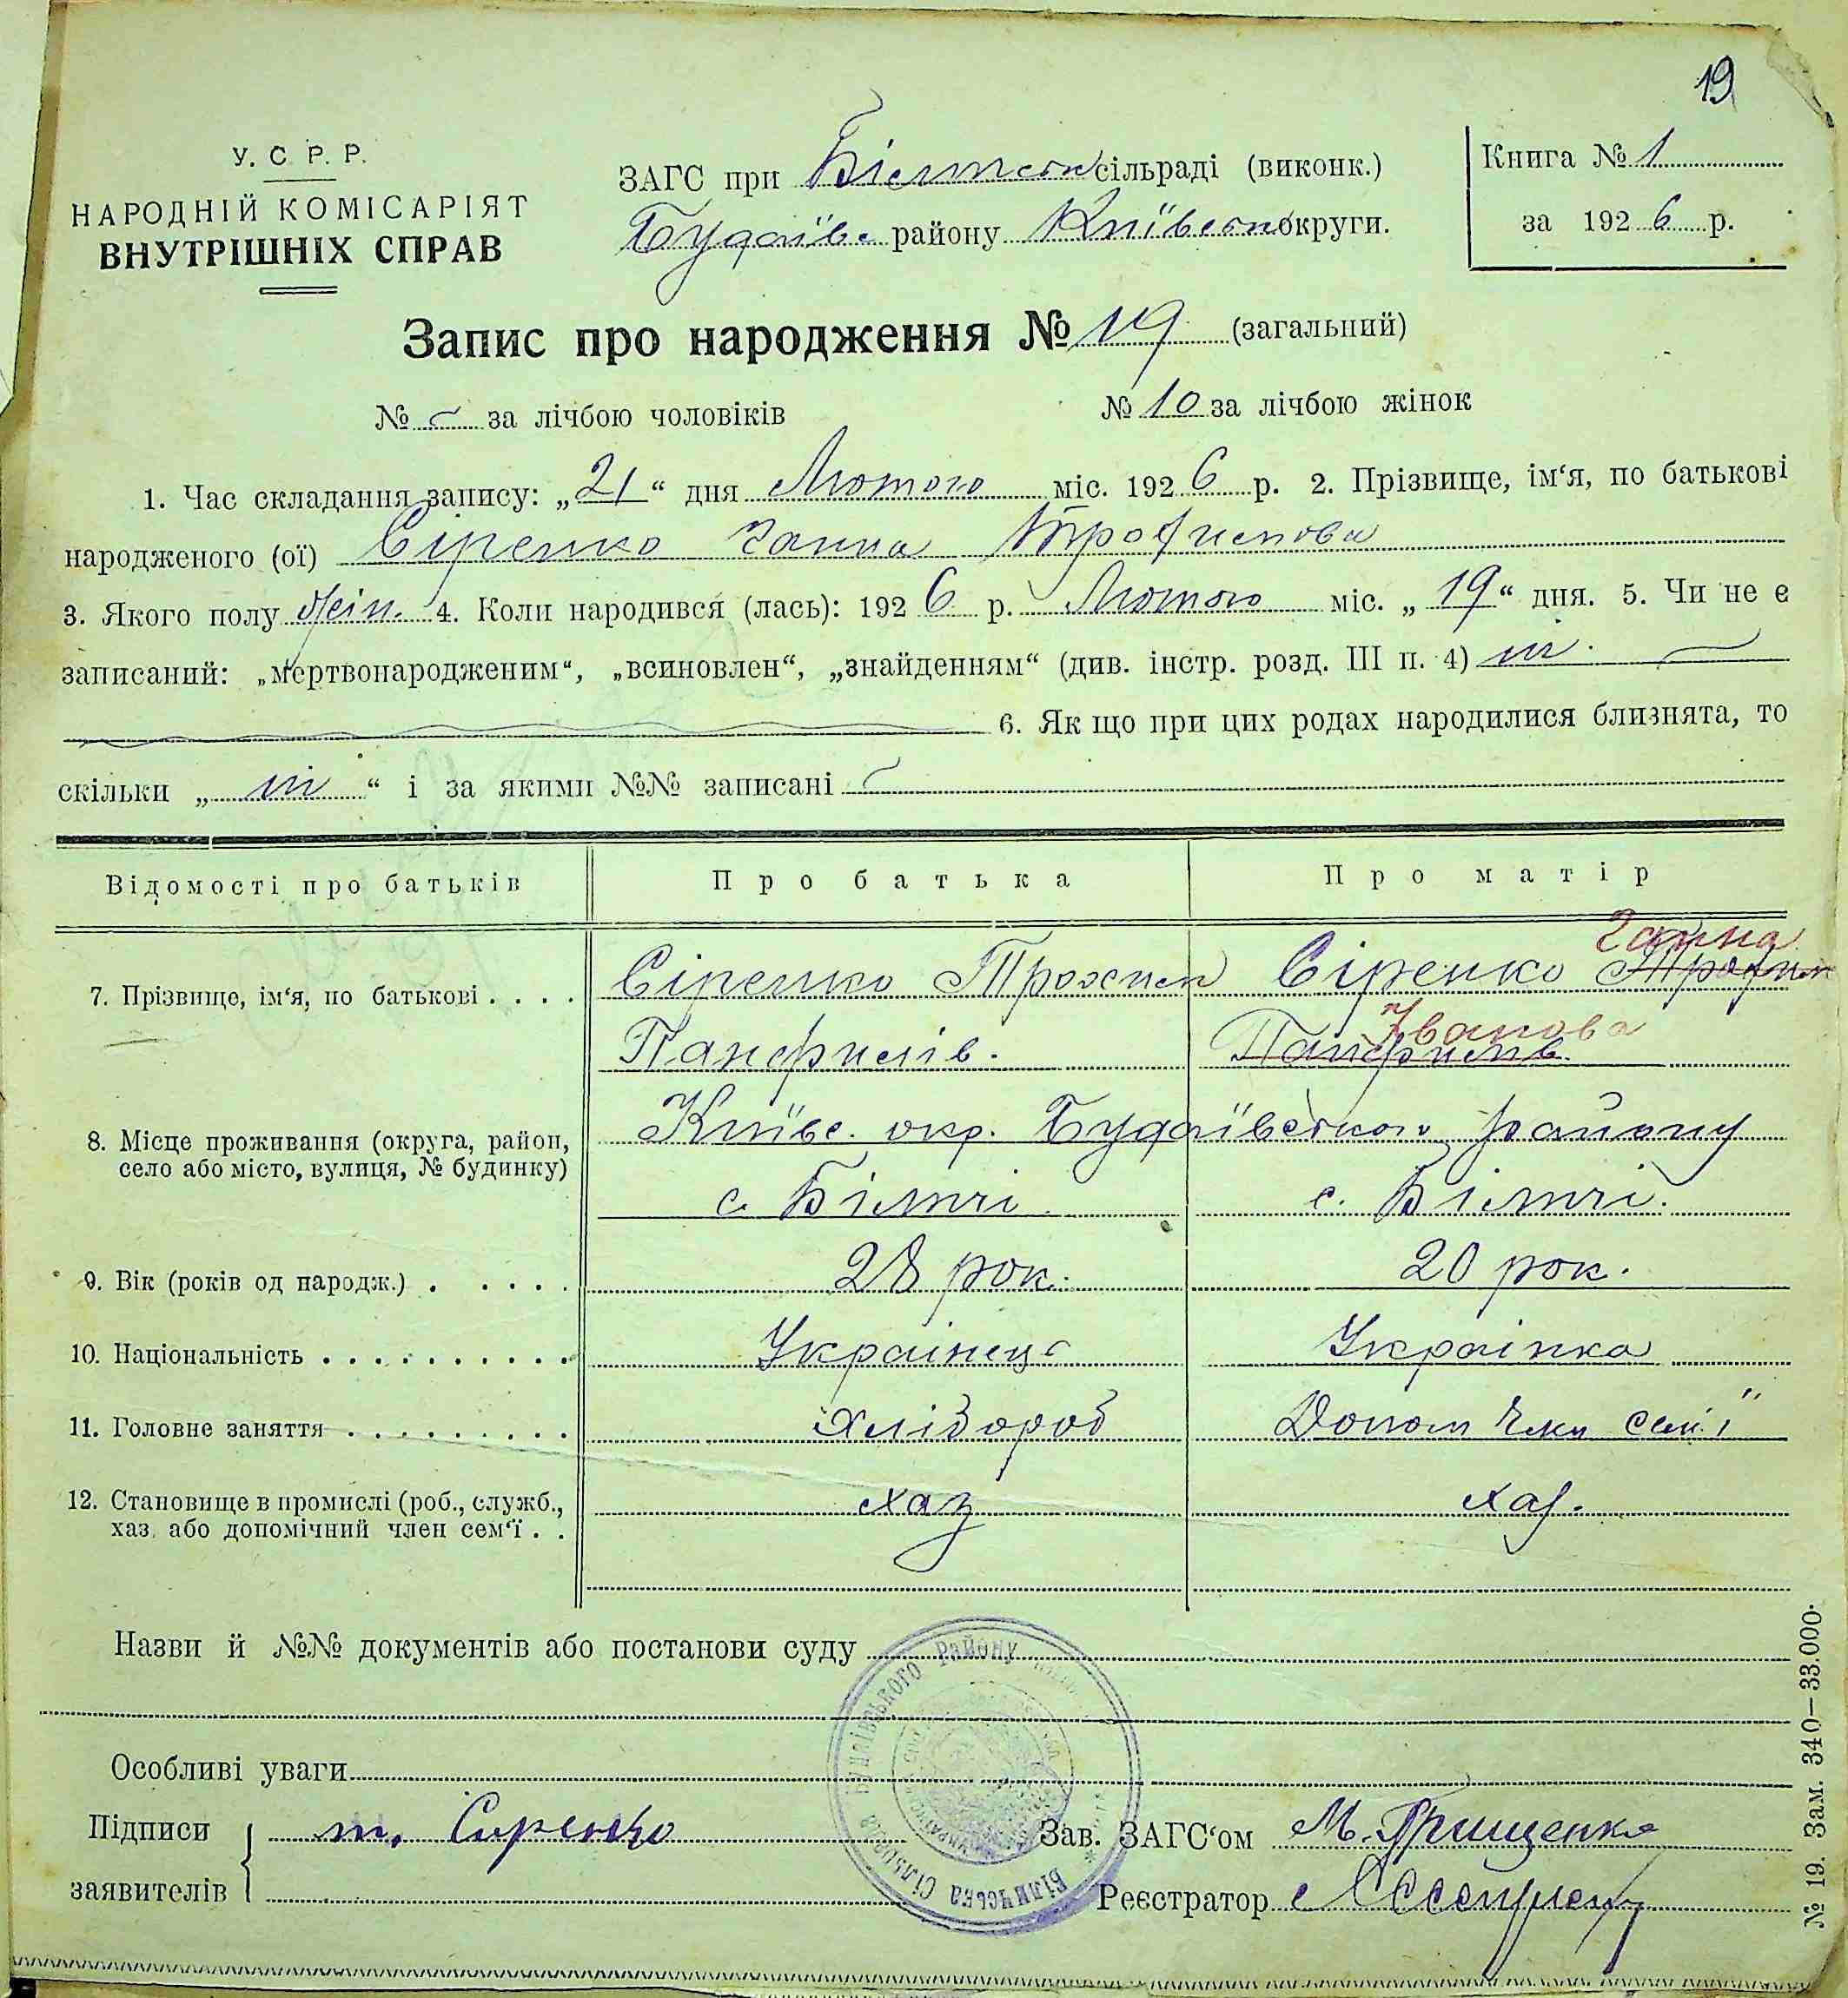 19
У. С. Р. Р.
НАРОДНІЙ КОМІСАРІЯТ
ВНУТРІШНІХ СПРАВ
ЗАГС при Білитськ сільраді (виконк.)
Будаївс. району Київськ округи.
Книга № 1
за 1926 р.
Запис про народження № 19 (загальний)
№ — за лічбою чоловіків № 10 за лічбою жінок
1. Час складання запису: „21“ дня Лютого міс. 1926 р. 2. Прізвище, ім‘я, по батькові
народженого (ої) Сіренко Ганна Трофимова
3. Якого полу жін. 4. Коли народився (лась): 1926 р. Лютого міс. „19“ дня. 5. Чи не є
записаний: „мертвонародженим“, „всиновлен“, „знайденням“ (див. інстр. розд. III п. 4) ні. —
6. Як що при цих родах народилися близнята, то
скільки „ ні “ і за якими №№ записані —
Відомості про батьків Про батька Про матір
7. Прізвище, ім‘я, по батькові . . . . Сіренко Трохим Сіренко Трофим Ганна
Панфилів. Панфилів. Іванова
8. Місце проживання (округа, район, Київс. окр. Будаївського району
село або місто, вулиця, № будинку) с. Біличі с. Біличі.
9. Вік (років од народж.) . . . . . 28 рок. 20 рок.
10. Національність . . . . . . . . . . Українець Українка
11. Головне заняття . . . . . . . . . Хлібороб Допом член сем'ї
12. Становище в промислі (роб., служб., хаз хаз.
хаз. або допомічний член сем‘ї . .
Назви й №№ документів або постанови суду
Особливі уваги
Підписи т. Сиренко
заявителів
Зав. ЗАГС‘ом М. Грищенко
Реєстратор
Біличська Сільрада Будаївського Району
№ 19. Зам. 340—33.000.